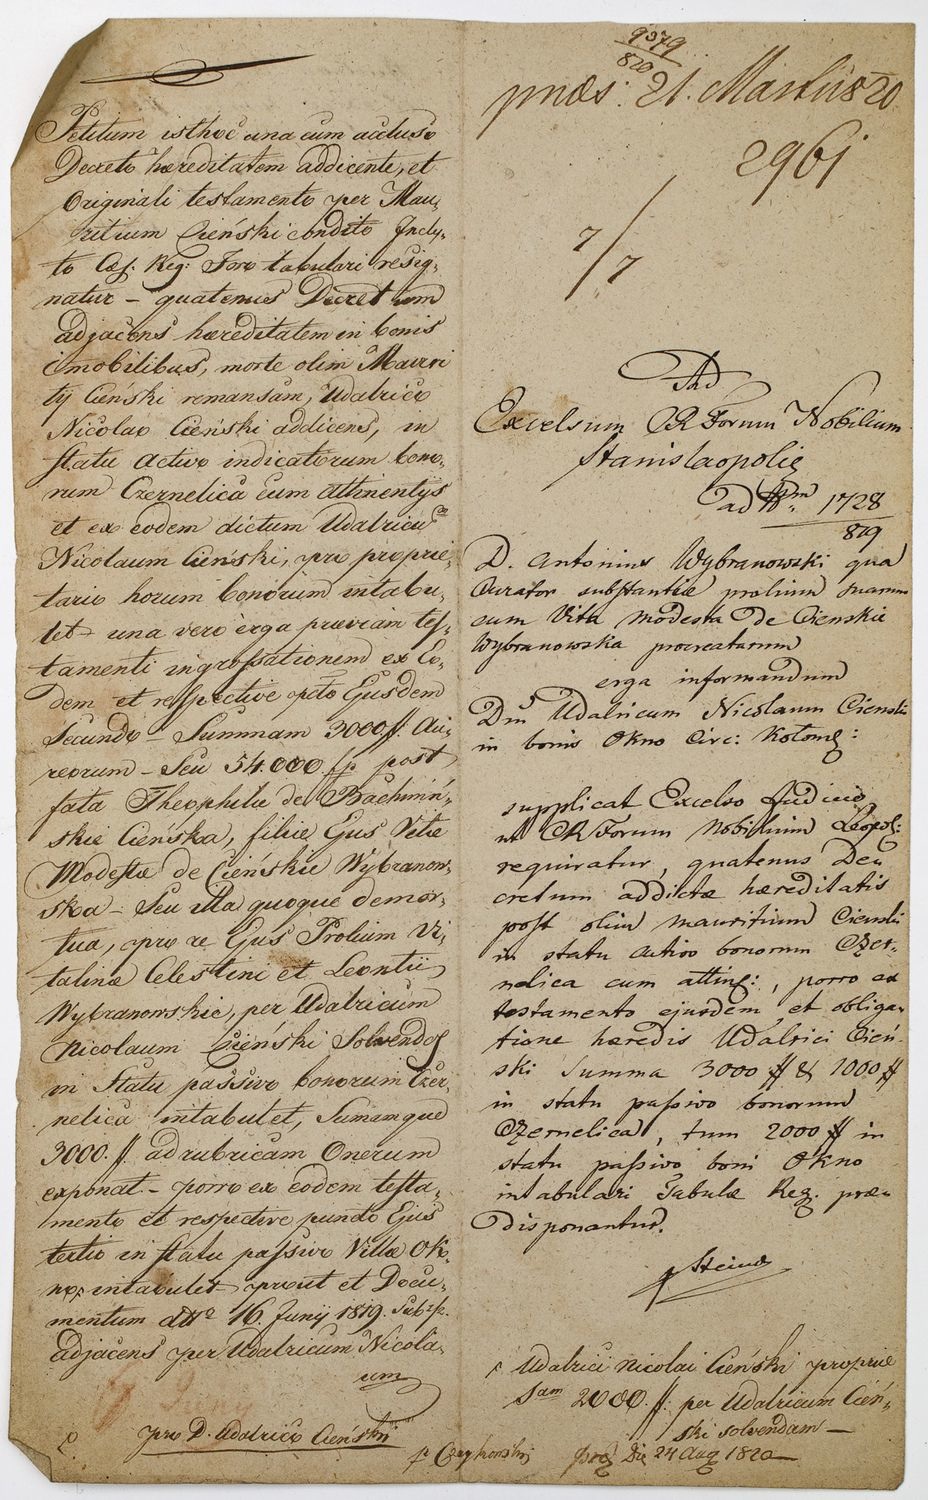 Petitum isthoc una cum accluso
Decreto hæreditatem addicente, et
Originali testamento per Mau-
ritium Cieński condito Incly-
to Cæs: Reg: Foro tabulari resig-
natur – quatenus Decretum
adjacens hæreditatem in bonis
imobilibus, morte olim Mauri
tij Cieński remansam, Udalrico
Nicolao Cieński addicens, in
statu activo indicatorum bono-
rum Czernelica cum attinentijs
et ex eodem dictum Udalricum
Nicolaum Cieński, pro proprie-
tario horum bonorum intabu-
let – una vero erga præviam tes-
tamenti ingrossationem ex Eo-
dem et respective pcto Ejusdem
Secundo – Summam 3000 ff. Au-
reorum – Seu 54.000 fp post
fata Theophilæ de Bachmiń-
skie Cieńska, filiæ Ejus Vitæ
Modestæ de Cieńskie Wybranow-
ska – Seu illa quoque demor-
tua, pro re Ejus Prolium Vi-
talinæ Celestini et Leontij
Wybranowskie, per Udalricum
Nicolaum Cieński Solvendos
in Statu passivo bonorum Czer-
nelica intabulet, Sumamque
3000. ff ad rubricam Onerum
exponat – porro ex eodem testa-
mento et respective puncto Ejus
tertio in statu passivo Villæ Ok-
no, intabulet prout et Docu-
mentum ddto 16. Junij 1819. Sub
adjacens per Udalricum Nicola-
um
pro D. Udalrico Cieński
9379
820
præs: 21. Martii 820
2961
7/7
Ad
Excelsum CR Forum Nobilium
Stanislaopolis
ad Nrm 1728
819
D. Antonius Wybranowski qua
Curator substantiæ prolium suarum
cum Vita Modesta De Cienskie
Wybranowska procreatarum
erga informandum
Dnum Udalricum Nicolaum Cienski
in bonis Okno Circ: Kołom:
supplicat Excelso Judicio
ut CR Forum Nobilium Leopol:
requiratur, quatenus De-
cretum addictæ hæreditatis
post olim Mauritium Cienski
in statu activo bonorum Czer-
nelica cum attin: , porro ex
testamento ejusdem et obliga-
tione hæredis Udalrici Cień-
ski Summa 3000 ff & 1000 ff
in statu passivo bonorum
Czernelica, tum 2000 ff in
statu passivo boni Okno
intabulari Tabulæ Reg. præ-
disponantur.
Udalrici Nicolai Cieński propriæ
Sam 2000. ff. per Udalricum Cień-
ski solvendam –
Die 24 Aug 1820